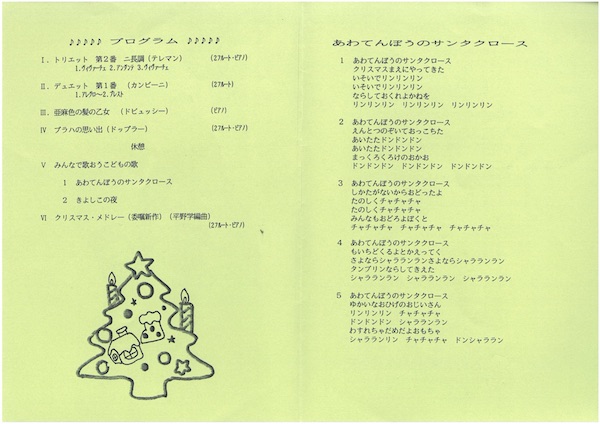 ♪♪♪♪♪ プログラム ♪♪♪♪♪
Ⅰ. トリエット 第2番 ニ長調(テレマン) (2フルート・ピアノ)
1.ヴィヴァーチェ 2.アンダンテ 3.ヴィヴァーチェ
Ⅱ. デュエット 第1番 (カンビーニ) (2フルート)
1.アレグロ〜2.プレスト
Ⅲ. 亜麻色の髪の乙女 (ドビュッシー) (ピアノ)
Ⅳ プラハの思い出(ドップラー) (2フルート・ピアノ)
休憩
Ⅴ みんなで歌おうこどもの歌
1 あわてんぼうのサンタクロース
2 きよしこの夜
Ⅵ クリスマス・メドレー(委嘱新作)(平野学編曲)
(2フルート・ピアノ)
あわてんぼうのサンタクロース
1 あわてんぼうのサンタクロース
クリスマスまえにやってきた
いそいでリンリンリン
いそいでリンリンリン
ならしておくれよかねを
リンリンリン リンリンリン リンリンリン
2 あわてんぼうのサンタクロース
えんとつのぞいておっこちた
あいたたドンドンドン
あいたたドンドンドン
まっくろくろけのおかお
ドンドンドン ドンドンドン ドンドンドン
3 あわてんぼうのサンタクロース
しかたがないからおどったよ
たのしくチャチャチャ
たのしくチャチャチャ
みんなもおどろよぼくと
チャチャチャ チャチャチャ チャチャチャ
4 あわてんぼうのサンタクロース
もいちどくるよとかえってく
さよならシャラランランさよならシャラランラン
タンブリンならしてきえた
シャラランラン シャラランラン シャラランラン
5 あわてんぼうのサンタクロース
ゆかいなおひげのおじいさん
リンリンリン チャチャチャ
ドンドンドン シャラランラン
わすれちゃだめだよおもちゃ
シャラランリン チャチャチャ ドンシャララン